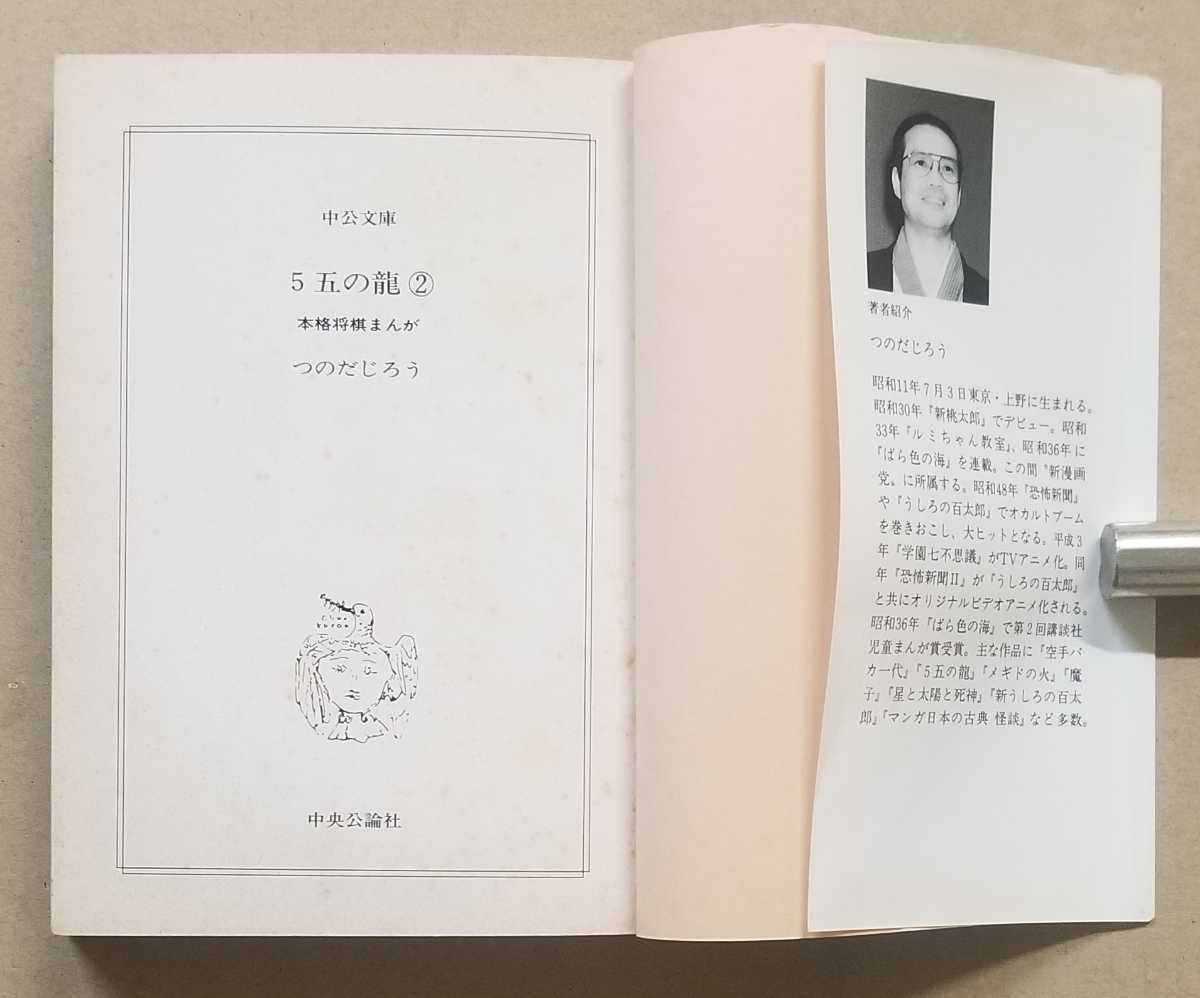 中公文庫
5五の龍②
本格将棋まんが
つのだじろう
中央公論社
著者紹介
つのだじろう
昭和11年7月3日東京・上野に生まれる。
昭和30年『新桃太郎』でデビュー。昭和
33年『ルミちゃん教室』、昭和36年に
『ばら色の海』を連載。この間〝新漫画
党〟に所属する。昭和48年『恐怖新聞』
や『うしろの百太郎』でオカルトブーム
を巻きおこし、大ヒットとなる。平成3
年『学園七不思議』がTVアニメ化。同
年『恐怖新聞II』が『うしろの百太郎』
と共にオリジナルビデオアニメ化される。
昭和36年『ばら色の海』で第2回講談社
児童まんが賞受賞。主な作品に『空手バ
カ一代』『5五の龍』『メギドの火』『魔
子』『星と太陽と死神』『新うしろの百太
郎』『マンガ日本の古典 怪談』など多数。